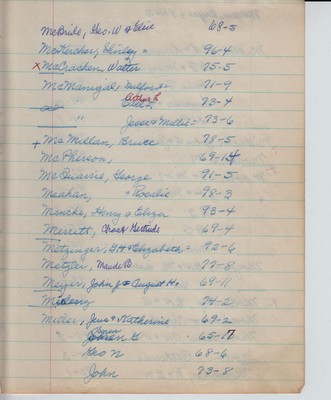 McBride, Geo. W & Elsie 68-5
McKercher, 96-4
x McCracken, Walter 75-5
McManigal, Milford 71-9
" 73-4
" Jesse & Mollie 73-6
+ McMillan, Bruce 78-5
McPherson, 69-14
McQuarrie, George 91-5
Meehan, & Rosalie 98-3
Mencke, Henry & Eliza 93-4
Merrett, Chas & Gertrude 69-4
Metzinger, G.H. & Elizabeth 92-6
Metzler, Maude B. 77-8
Meyer, John J & August H. 69-11
74-2
Mider, Jens & Katherine 69-2
65-17
Geo N 68-6
John 73-8